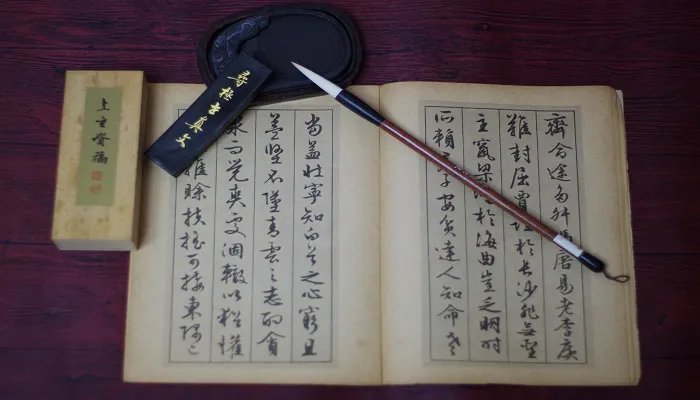 齊命途多舛馮唐易老李廣
難封屈賈誼於長沙非無聖
主竄梁於海曲豈乏明時
所賴子安貧達人知命老
當益壯寧知白首之心窮且
益堅不墜青雲之志酌貪
泉而覺爽處涸轍以猶懽
雖賒扶搖可接東隅已
尋極真文
上